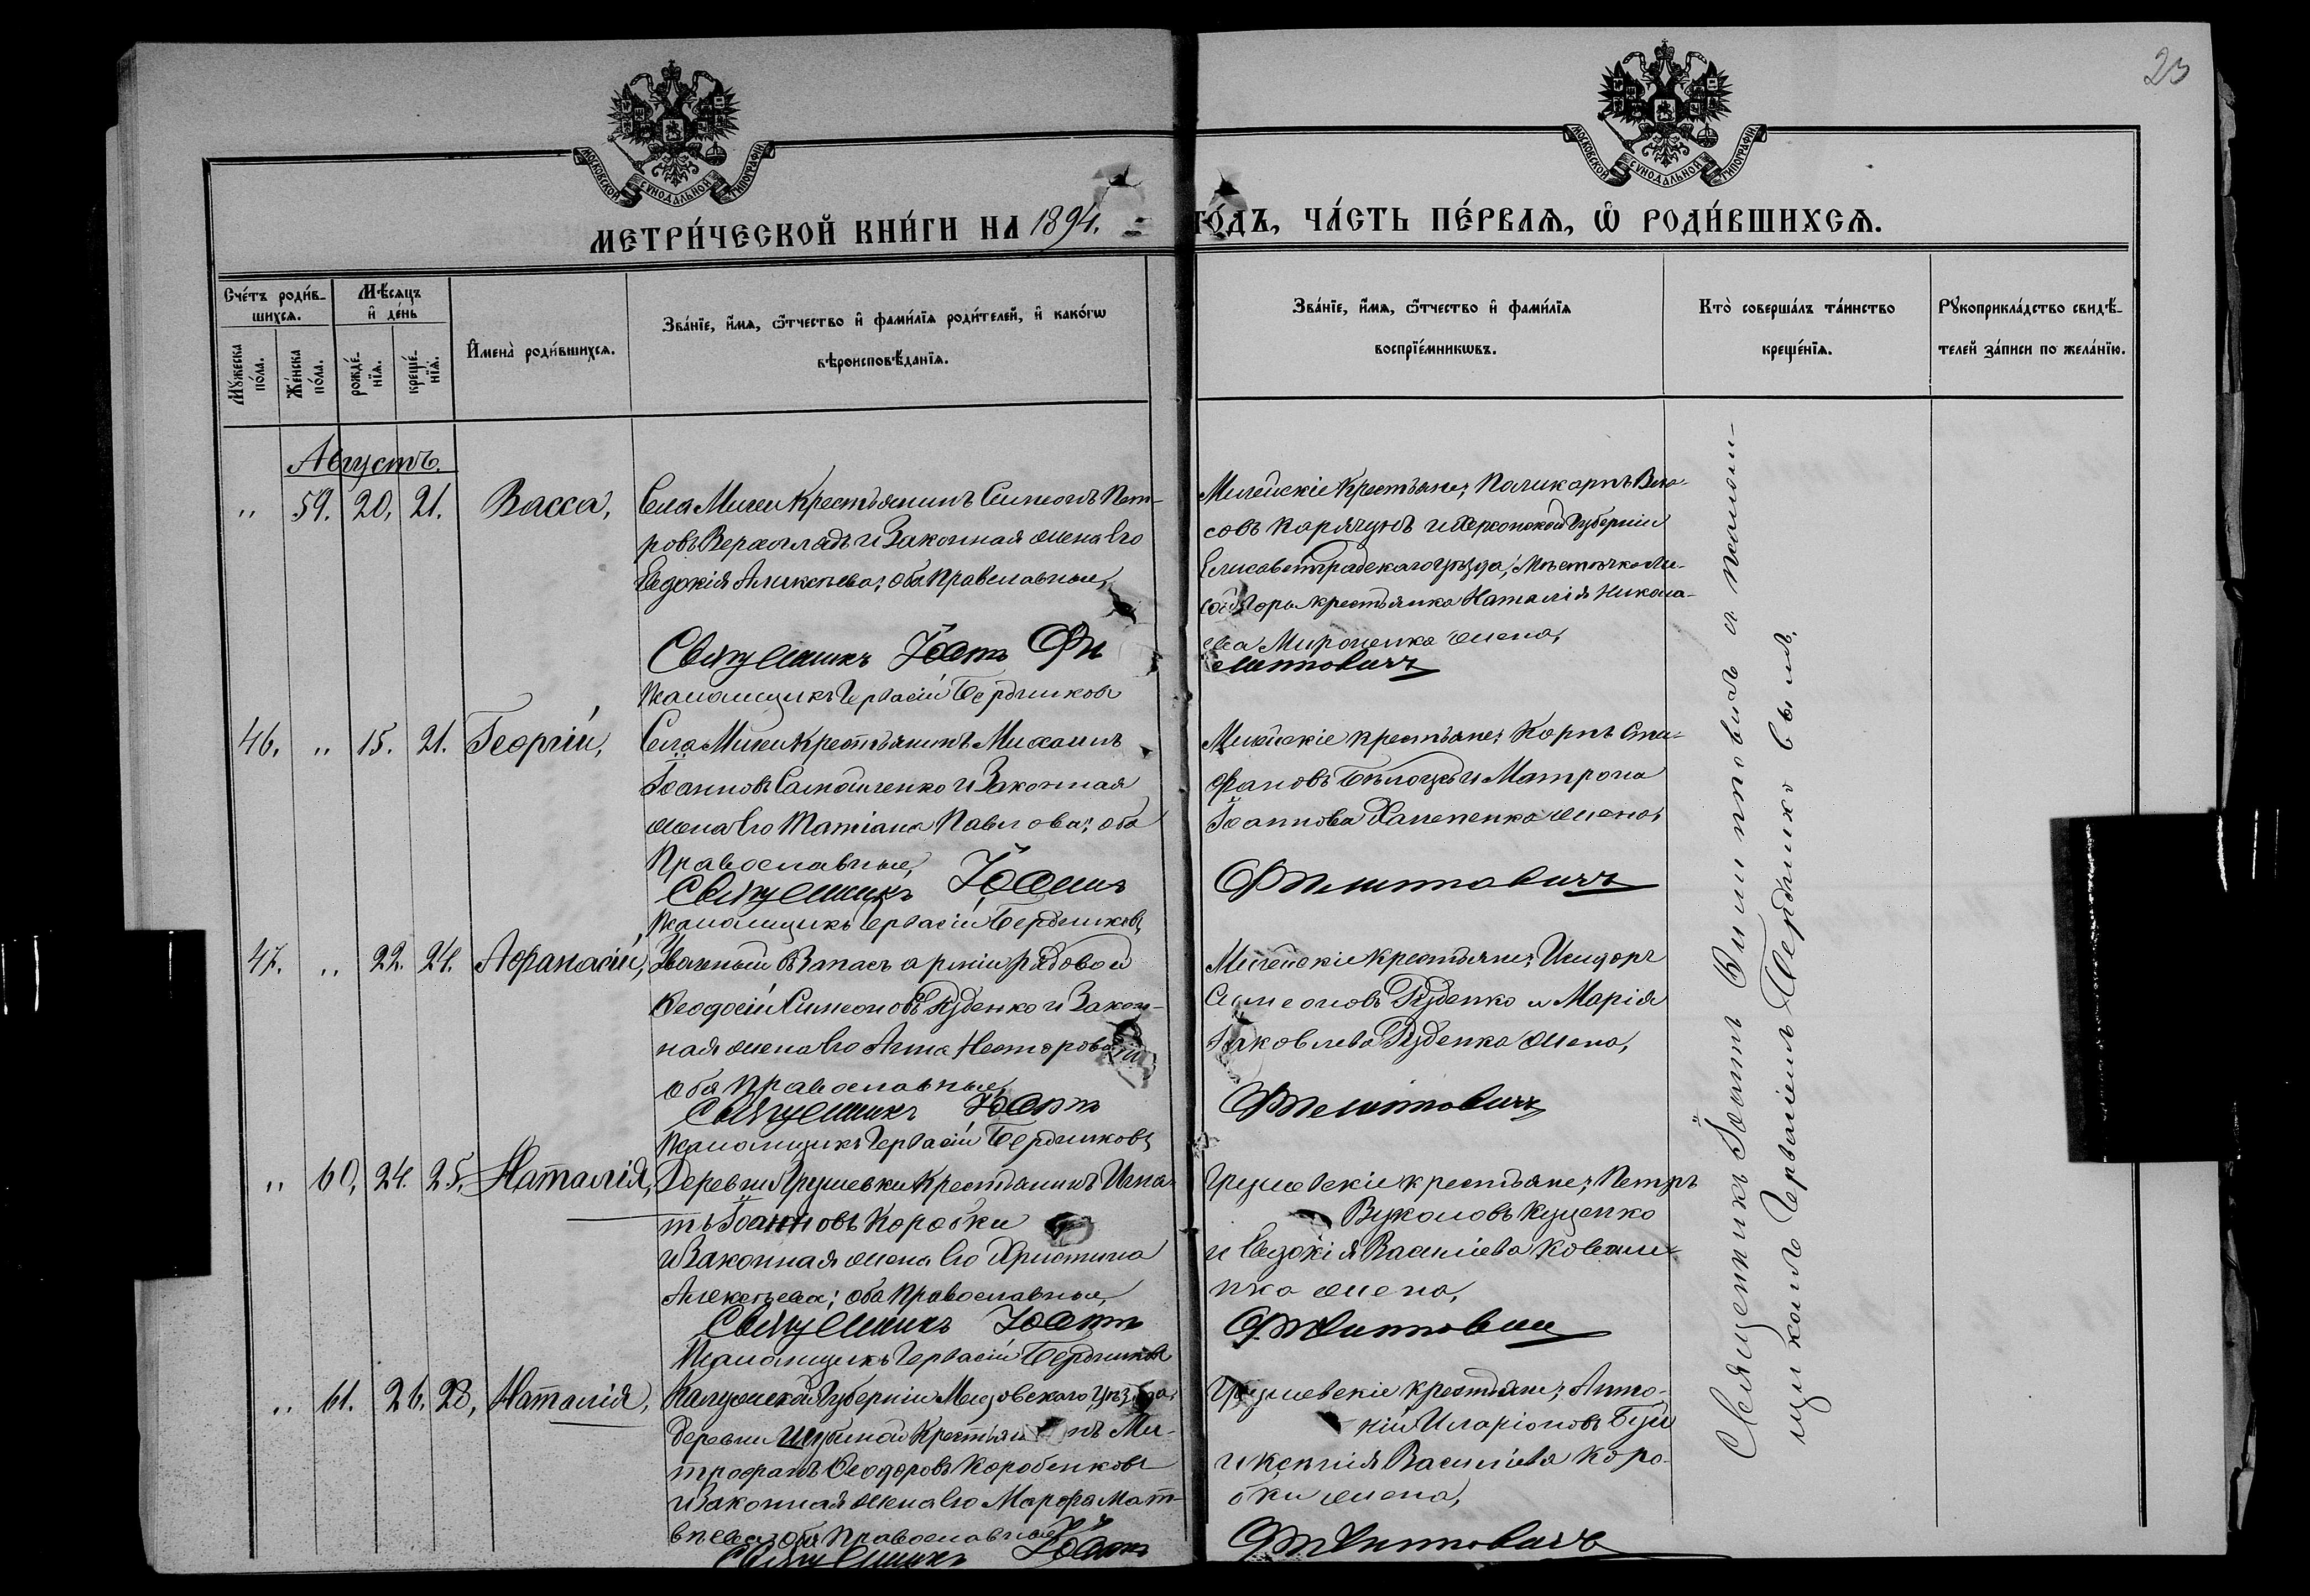 23
МОСКОВСКОЙ СѴНОДАЛЬНОЙ ТИПОГРАФІИ
МОСКОВСКОЙ СѴНОДАЛЬНОЙ ТИПОГРАФІИ
МЕТРИ́ЧЕСКОЙ КНИ́ГИ НА 1894. ГО́ДЪ, ЧА́СТЬ ПЕ́РВАѦ, Ѡ҆ РОДИ́ВШИХСѦ.
Сче́тъ роди́в-
шихсѧ.
Мꙋ́жеска по́ла.
Же́нска по́ла.
Мѣ́сѧцъ
и҆ де́нь
рожде́-
нїѧ.
креще́-
нїѧ.
И҆мена̀ роди́вшихсѧ.
Зва́нїе, и҆́мѧ, ѻ҆́тчество и҆ фами́лїѧ роди́телей, и҆ како́гѡ
вѣроисповѣ́данїѧ.
Зва́нїе, и҆́мѧ, ѻ҆́тчество и҆ фами́лїѧ
воспрїе́мникѡвъ.
Кто̀ соверша́лъ та́инство
креще́нїѧ.
Рꙋкоприкла́дство свидѣ́-
телей за́писи по жела́нїю.
Августъ.
" 59. 20, 21. Васса,
Села Мигеи Крестьянинъ Симеонъ Пет-
ровъ Верхогладъ и Законная жена Его
Евдокія Алексѣева; оба Православные,
Священникъ Іоаннъ Фи
Псаломщикъ Гервасій Бердников
Мигейскіе Крестьяне; Поликарпъ Вла-
совъ Карячунъ и Херсонской Губерніи
Елисаветградскаго уѣзда, Мѣстечка Лы-
сой Горы крестьянка Наталія Никола-
ева Мироненка жена,
липповичъ
46. " 15. 21. Георгій,
Села Мигеи Крестьянинъ Михаилъ
Іоанновъ Самойленко и Законная
жена Его Татіана Павлова; оба
Православные,
Священникъ Іоаннъ
Псаломщикъ Гервасій Бердниковъ
Мигейскіе крестьяне; Карпъ Сте-
фановъ и Матрона
Іоаннова жена,
Филипповичъ
47. " 22. 24. Афанасій,
Уволенный въ Запасъ арміи рядовой
Ѳеодосій Симеоновъ Руденко и Закон-
ная жена Его Анна Несторова
оба Православные
Священникъ Іоаннъ
Псаломщикъ Гервасій Бердниковъ
Мигейскіе крестьяне; Исидоръ
Симеоновъ Руденко и Марія
Іаковлева Руденка жена,
Филипповичъ
" 60, 24. 25, Наталія,
Деревни Грушевки Крестьянинъ Игна-
тъ Іоанновъ Коробки
и Законная жена Его Христина
Алексѣева; оба Православные,
Священникъ Іоаннъ
Псаломщикъ Гервасій Бердников
Грушевскіе крестьяне; Петръ
Вуколовъ Куценко
и Евдокія Василіева Ковале-
нка жена,
Филипповичъ
" 61. 26. 28, Наталія,
Калужской Губерніи Мещовскаго уѣзда,
Деревни Крестьянинъ Ми-
трофанъ Ѳеодоровъ Коробенковъ
и Законная жена Его Марфа Мат-
вѣева; оба Православные,
Священникъ Іоаннъ
Грушевскіе крестьяне; Анто-
ній Иларіоновъ
и Ксенія Василіева Коро-
бки жена,
Филипповичъ
Священникъ Іоаннъ Филипповичъ и псалом-
щикомъ Гервасіемъ Бердниковымъ.